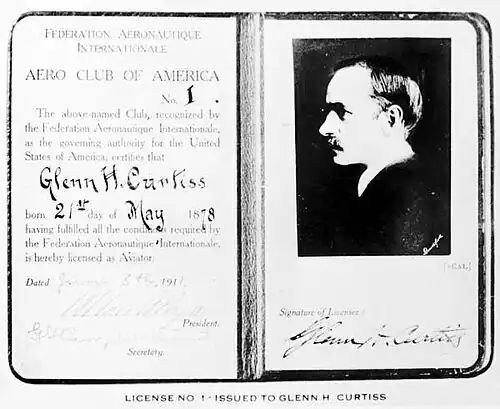 FEDERATION AERONAUTIQUE
INTERNATIONALE
AERO CLUB OF AMERICA
No. 1.
The above-named Club, recognized by
the Federation Aeronautique Internationale,
as the governing authority for the United
States of America, certifies that
Glenn H. Curtiss
born 21st day of May 1878
having fulfilled all the conditions required by
the Federation Aeronautique Internationale,
is hereby licensed as Aviator.
Dated June 8th, 1911.
President.
Secretary.
[SEAL]
Signature of Licensee
Glenn H. Curtiss
LICENSE NO 1 · ISSUED TO GLENN H CURTISS